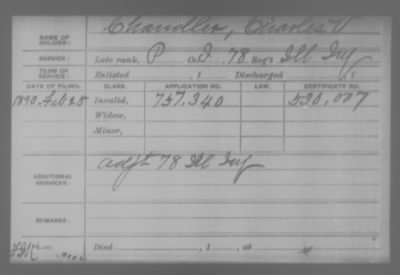 NAME OF SOLDIER: Chandler, Charles V
SERVICE: Late rank, P Co. I, 78 Reg't Ill Inf
TERM OF SERVICE: Enlisted , 1 Discharged , 1
DATE OF FILING. CLASS. APPLICATION NO. LAW. CERTIFICATE NO.
1890. Feb 25 Invalid, 757.340 530,007
Widow,
Minor,
ADDITIONAL SERVICES: Adjt 78 Ill Inf
REMARKS:
Died , 1 , at